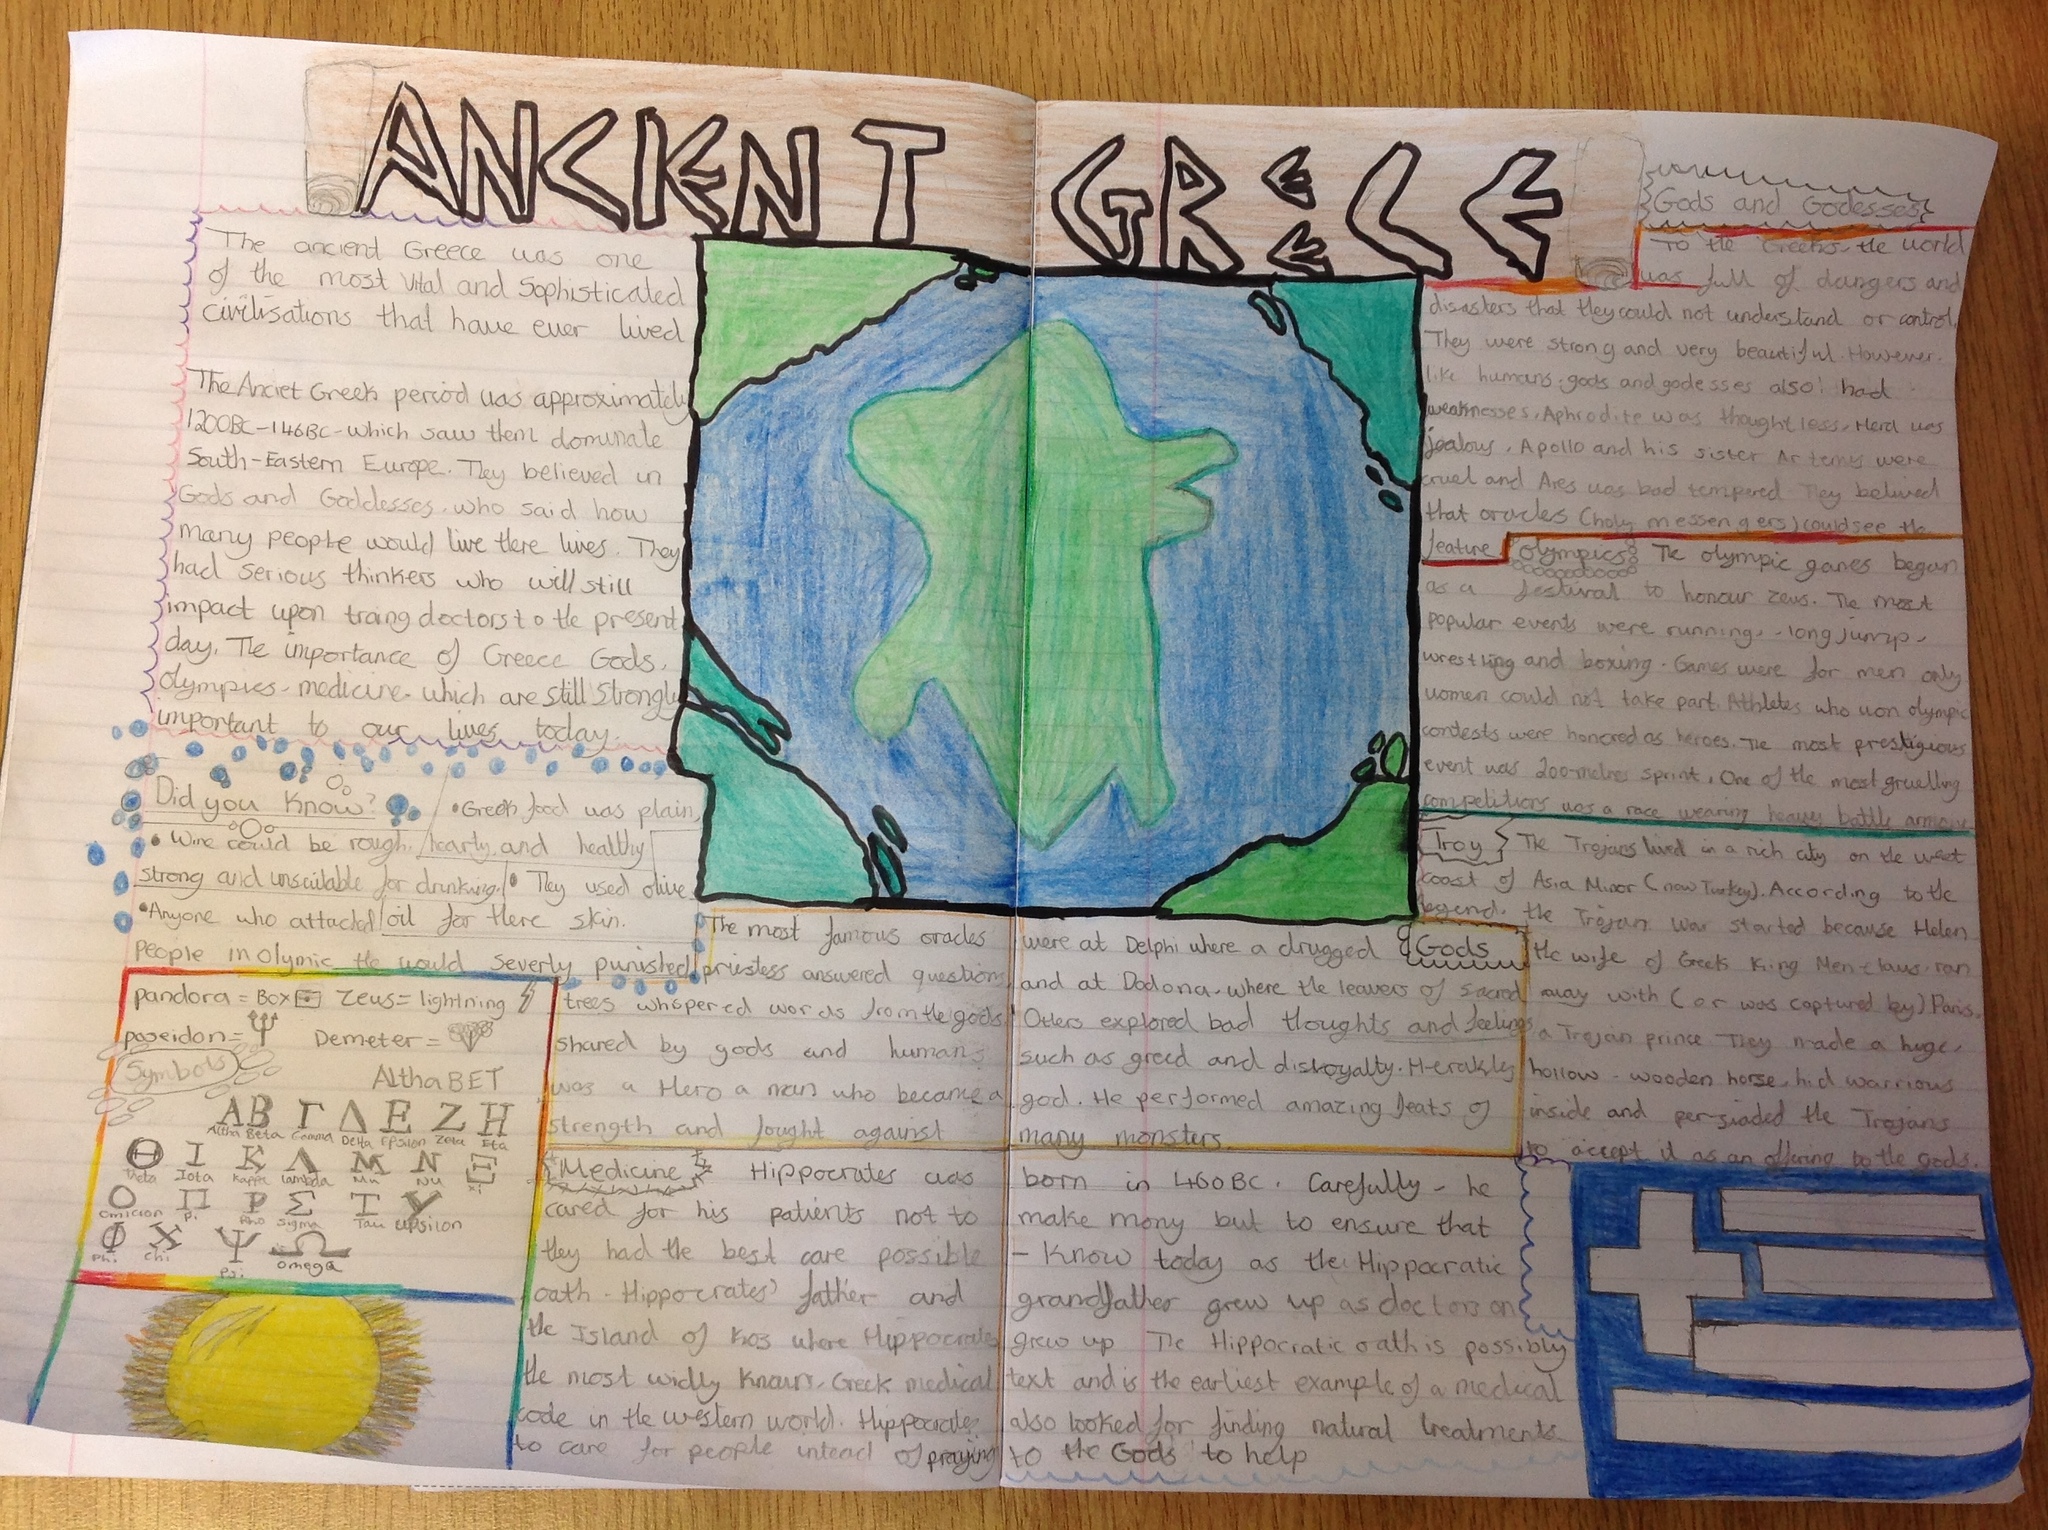 ANCIENT GREECE
The ancient Greece was one
of the most Vital and Sophisticated
civilisations that have ever lived
The Anciet Greek period was approximately
1200BC-146BC-which saw them dominate
South-Eastern Europe. They believed in
Gods and Goddesses. who said how
many people would live there lives. They
had serious thinkers who will still
impact upon traing doctors to the present
day. The importance of Greece Gods.
olympics-medicine-which are still strongly
important to our lives today.
Did you Know?
• Wine could be rough,
strong and unsuitable for drinking.
• Anyone who attacked
people in Olymic the would severly punished
• Greek food was plain,
hearty and healthy
• They used olive
oil for there skin.
pandora = Box Zeus= lightning
poseidon= Demeter =
Symbols
AlthaBET
Α Β Γ Δ Ε Ζ Η
Altha Beta Gamma Delta Epsilon Zeta Eta
Θ Ι Κ Λ Μ Ν Ξ
theta Iota Kappa lambda Mu Nu xi
Ο Π Ρ Σ Τ Υ
omicron pi Rho sigma Tau upsilon
Φ Χ Ψ Ω
Phi Chi Psi omega
Gods
The most famous oracles were at Delphi where a drugged
priestess answered questions and at Dodona. where the leavers of sacred
trees whispered words from the gods. Others explored bad thoughts and feelings
shared by gods and humans such as greed and disloyalty. Herakles
was a Hero a man who became a god. He performed amazing feats of
strength and fought against many monsters.
Medicine Hippocrates was born in 460BC. Carefully - he
cared for his patients not to make mony but to ensure that
they had the best care possible - Know today as the Hippocratic
oath - Hippocrates' father and grandfather grew up as doctors on
the Island of Kos where Hippocrates grew up The Hippocratic oath is possibly
the most widly known. Greek medical text and is the earliest example of a medical
code in the western world. Hippocrates also looked for finding natural treatments
to care for people intead of praying to the Gods to help
Gods and Godesses
To the Greeks, the world
was full of dangers and
disasters that they could not understand or control.
They were strong and very beautiful. However.
like humans. gods and godesses also had
weaknesses. Aphrodite was thoughtless. Hera was
jealous. Apollo and his sister Artemis were
cruel and Ares was bad tempered They belived
that oracles (holy messengers) could see the
feature
Olympics The olympic games began
as a festival to honour zeus. The most
popular events were running, -long jump-
wrestling and boxing. Games were for men only
women could not take part. Athletes who won olympic
contests were honored as heroes. The most prestigious
event was 200-metres sprint. One of the most gruelling
competitions was a race wearing heavy battle armour
Troy The Trojans lived in a rich city on the west
coast of Asia Minor (now Turkey). According to the
legend. the Trojan war started because Helen
the wife of Greek King Menelaus. ran
away with (or was captured by) Paris.
a Trojan prince They made a huge.
hollow - wooden horse. hid warrious
inside and persiaded the Trojans
to accept it as an offering to the gods.